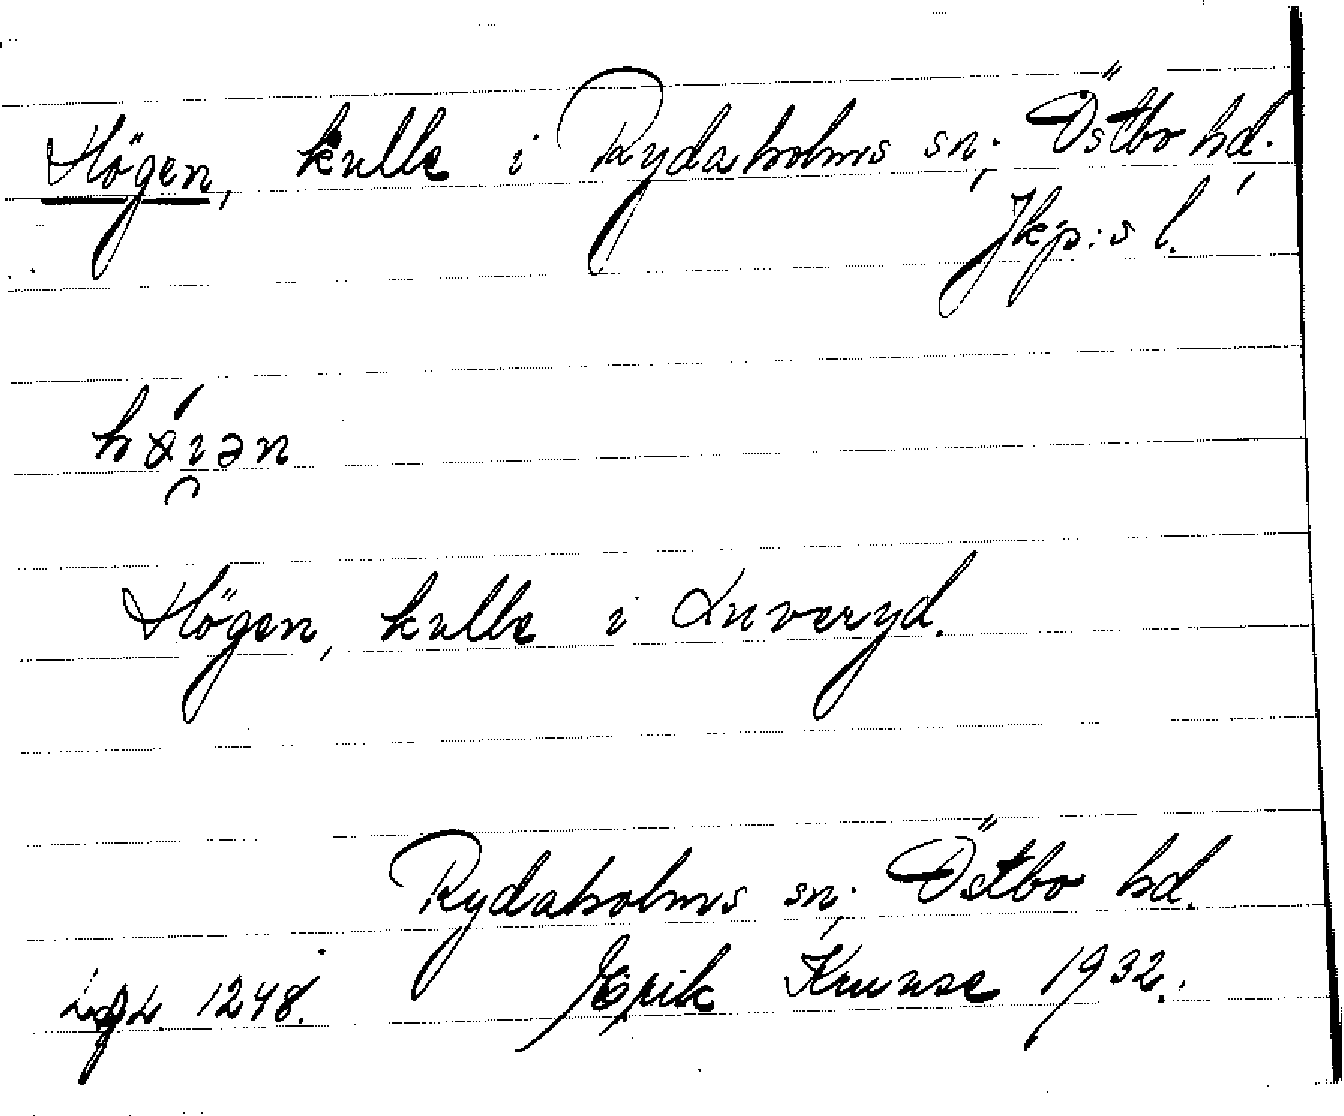 Högen, kulle i Rydaholms sn; Östbo hd.
Jkp:s l.
Högen, kulle i Luveryd.
Rydaholms sn; Östbo hd.
1248. Erik Kruuse 1932.